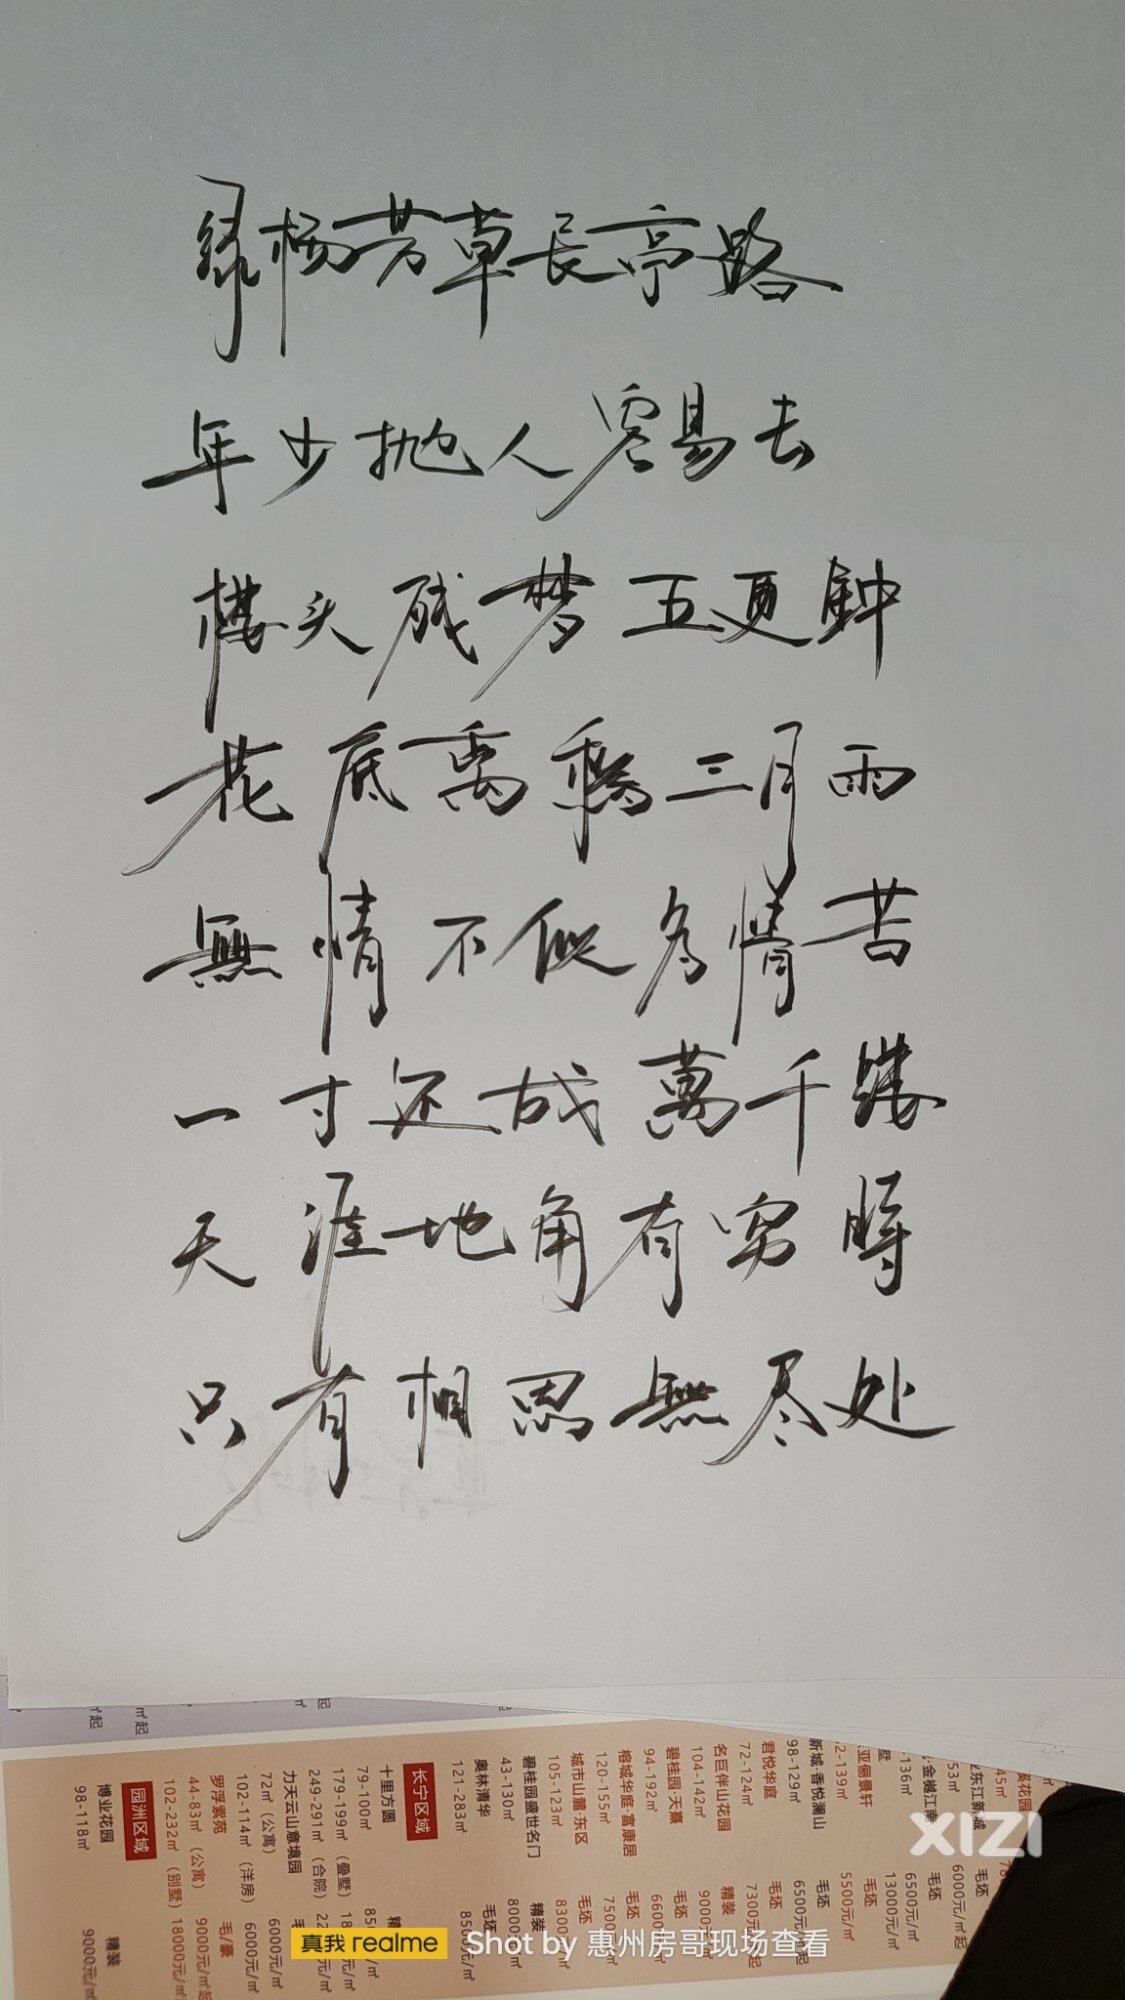 绿杨芳草长亭路
年少抛人容易去
楼头残梦五更钟
花底离愁三月雨
無情不似多情苦
一寸还成萬千缕
天涯地角有穷時
只有相思無尽处
新城·香悦澜山
98-129㎡ 毛坯 6500元/㎡起
君悦华庭
72-124㎡ 毛坯 7300元/㎡起
名巨伴山花园
104-142㎡ 精装 9000元/㎡
碧桂园·天麓
94-192㎡ 毛坯 6600元/㎡
榕城华庭·富康居
120-155㎡ 毛坯
城市山麓·东区
105-123㎡ 毛坯 8300元/㎡
碧桂园盛世名门
43-130㎡ 精装 8000元/㎡
奥林清华
121-283㎡ 毛坯 8500元/㎡
长宁区域
十里方圆
79-100㎡
179-199㎡（叠墅）
249-291㎡（合院）
力天云山意境园
72㎡（公寓） 6000元/㎡
102-114㎡（洋房） 6000元/㎡
罗浮紫苑 毛/豪
44-83㎡（公寓） 9000元/㎡起
102-232㎡（别墅） 18000元/㎡
园洲区域
博业花园 精装
98-118㎡ 9000元/㎡
XIZI
真我 realme Shot by 惠州房哥现场查看